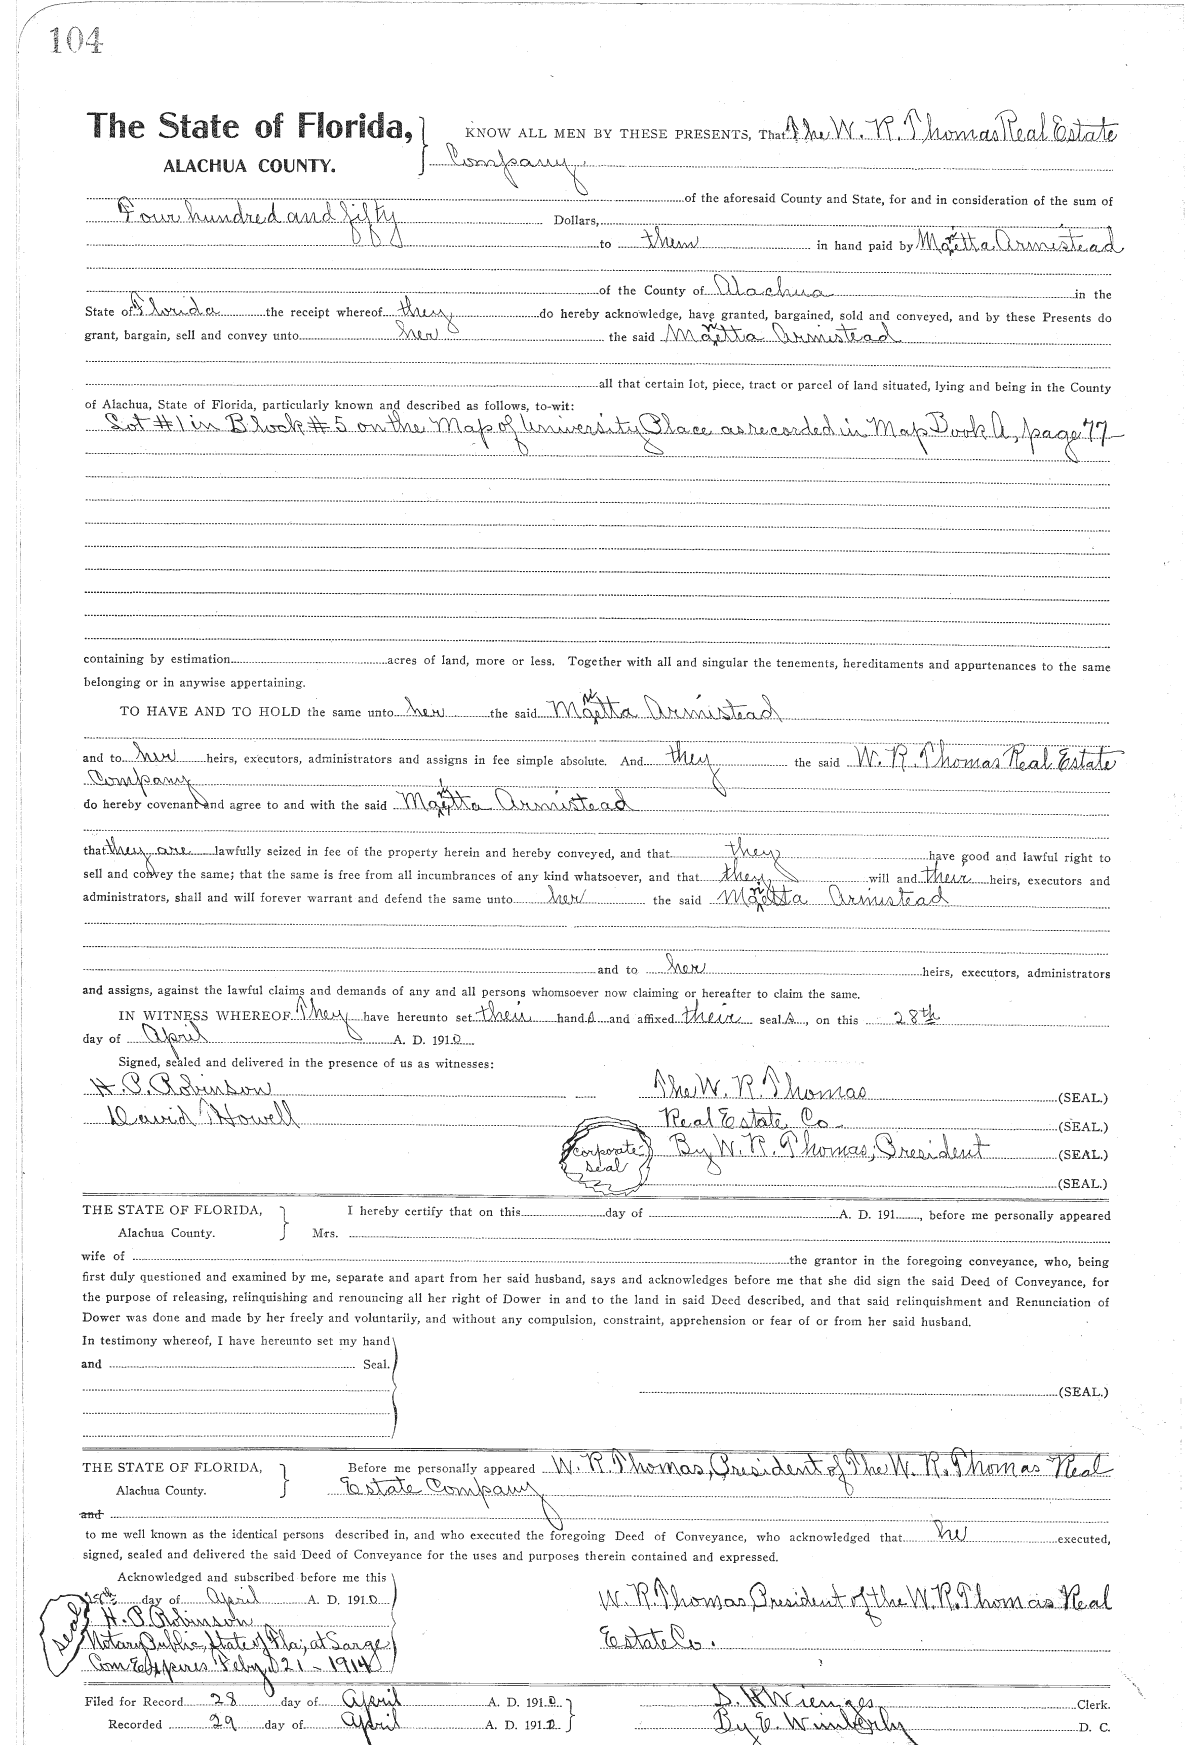 104
The State of Florida, KNOW ALL MEN BY THESE PRESENTS, That The W. R. Thomas Real Estate
ALACHUA COUNTY. Company.
of the aforesaid County and State, for and in consideration of the sum of
Four hundred and fifty Dollars,
to them in hand paid by Maretta Armistead
of the County of Alachua in the
State of Florida the receipt whereof they do hereby acknowledge, have granted, bargained, sold and conveyed, and by these Presents do
grant, bargain, sell and convey unto her the said Armistead
all that certain lot, piece, tract or parcel of land situated, lying and being in the County
of Alachua, State of Florida, particularly known and described as follows, to-wit:
Lot #1 in Block #5 on the Map of University Place as recorded in Map Book A, page 77
containing by estimation acres of land, more or less. Together with all and singular the tenements, hereditaments and appurtenances to the same
belonging or in anywise appertaining.
TO HAVE AND TO HOLD the same unto her the said Armistead
and to her heirs, executors, administrators and assigns in fee simple absolute. And they the said W. R. Thomas Real Estate
Company
do hereby covenant and agree to and with the said Armistead
that they are lawfully seized in fee of the property herein and hereby conveyed, and that they have good and lawful right to
sell and convey the same; that the same is free from all incumbrances of any kind whatsoever, and that they will and their heirs, executors and
administrators, shall and will forever warrant and defend the same unto her the said Armistead
and to her heirs, executors, administrators
and assigns, against the lawful claims and demands of any and all persons whomsoever now claiming or hereafter to claim the same.
IN WITNESS WHEREOF They have hereunto set their hands and affixed their seals, on this 28th
day of April A. D. 1910
Signed, sealed and delivered in the presence of us as witnesses:
H. P. Robinson The W. R. Thomas (SEAL.)
David Howell Real Estate Co. (SEAL.)
corporate seal By W. R. Thomas, President (SEAL.)
(SEAL.)
THE STATE OF FLORIDA, I hereby certify that on this day of A. D. 191 , before me personally appeared
Alachua County. Mrs.
wife of the grantor in the foregoing conveyance, who, being
first duly questioned and examined by me, separate and apart from her said husband, says and acknowledges before me that she did sign the said Deed of Conveyance, for
the purpose of releasing, relinquishing and renouncing all her right of Dower in and to the land in said Deed described, and that said relinquishment and Renunciation of
Dower was done and made by her freely and voluntarily, and without any compulsion, constraint, apprehension or fear of or from her said husband.
In testimony whereof, I have hereunto set my hand
and Seal.
(SEAL.)
THE STATE OF FLORIDA, Before me personally appeared W. R. Thomas, President of The W. R. Thomas Real
Alachua County. Estate Company
and
to me well known as the identical persons described in, and who executed the foregoing Deed of Conveyance, who acknowledged that he executed,
signed, sealed and delivered the said Deed of Conveyance for the uses and purposes therein contained and expressed.
Acknowledged and subscribed before me this
28th day of April A. D. 1910 W. R. Thomas, President of the W. R. Thomas Real
seal H. P. Robinson
Notary Public, State of Fla; at Large Estate Co.
Com Expires Feby, 21 - 1914
Filed for Record 28 day of April A. D. 1910 S. H. Wienges Clerk.
Recorded 29 day of April A. D. 1910 By E. Wimberly D. C.